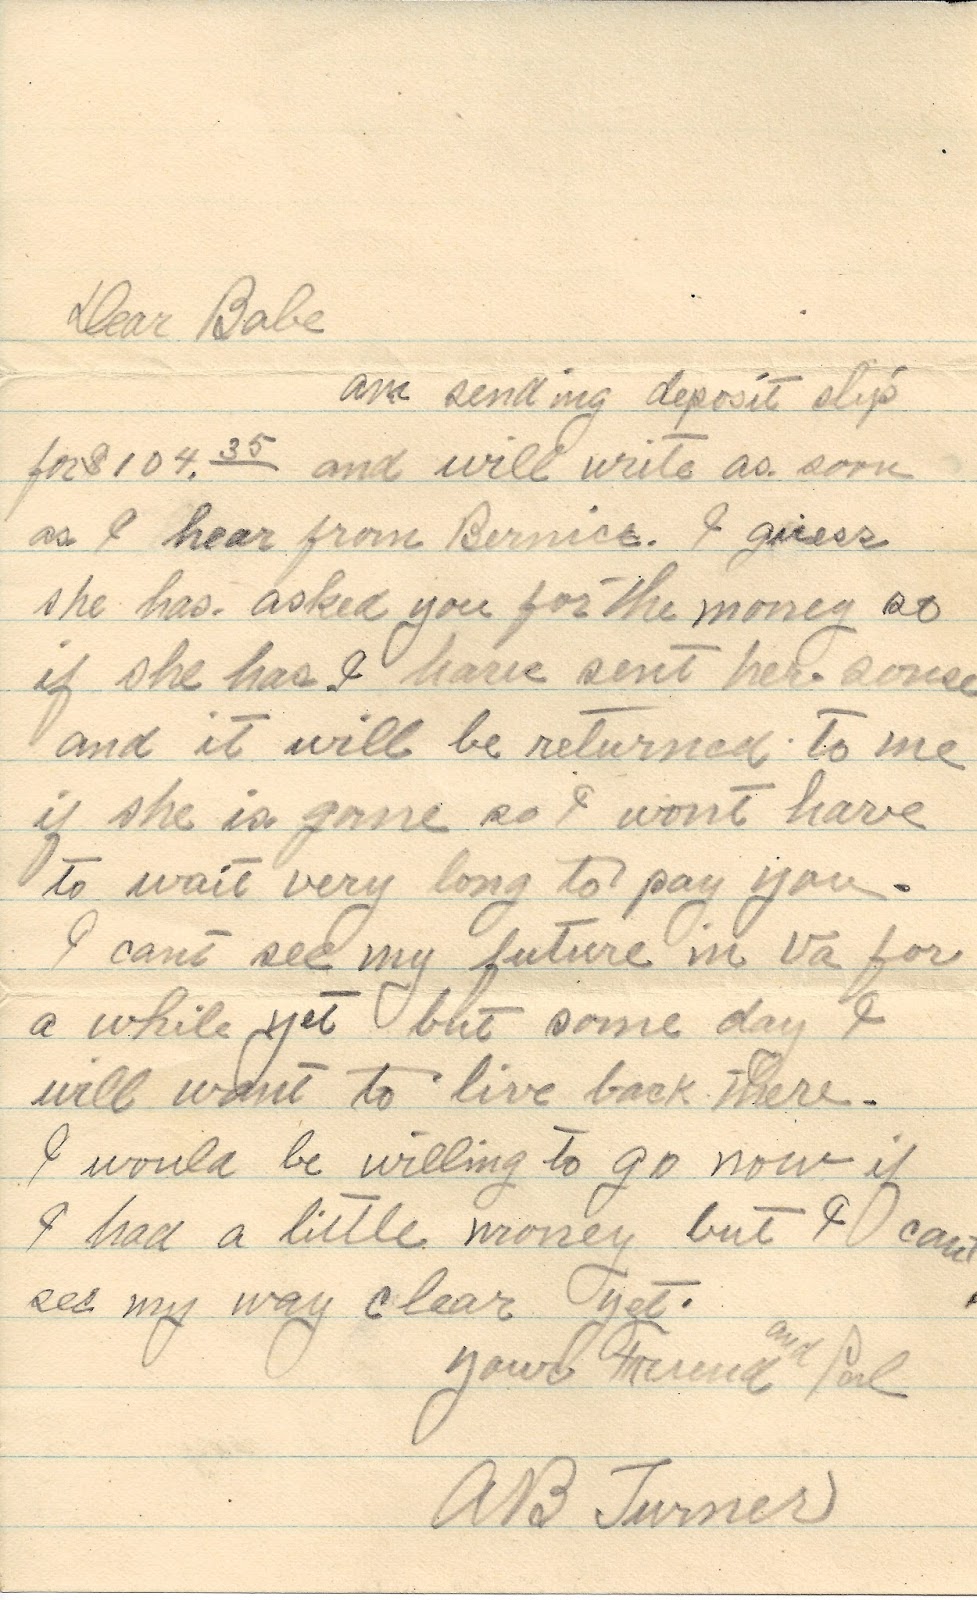 Dear Babe
am sending deposit slip
for $104.35 and will write as soon
as I hear from Bernice. I guess
she has. asked you for the money so
if she has I have sent her. some
and it will be returned to me
if she is gone so I wont have
to wait very long to pay you.
I cant see my future in Va for
a while yet but some day I
will want to live back there.
I would be willing to go now if
I had a little money but I cant
see my way clear yet.
your Friend and Pal
AB Turner